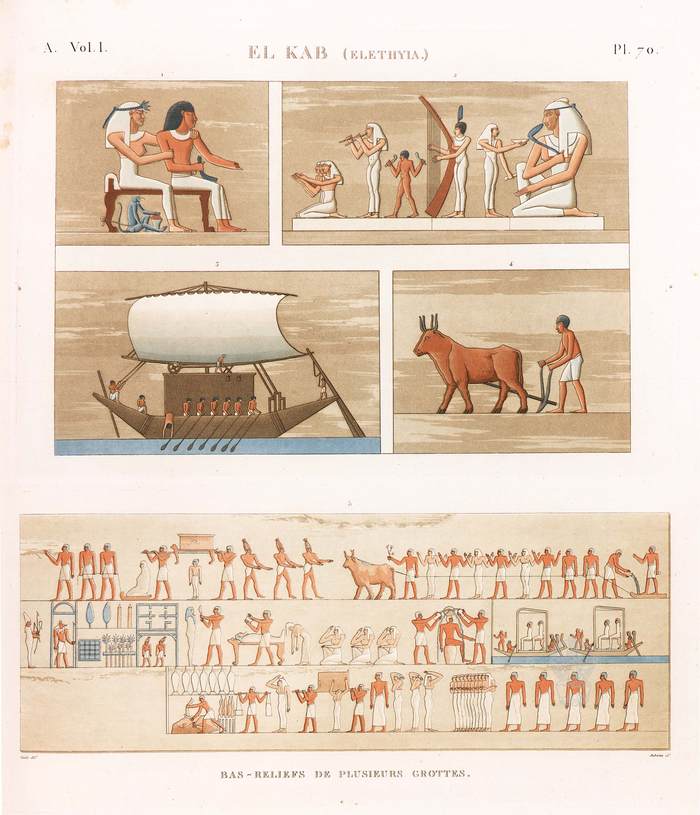 A. Vol. I.
EL KAB (ELETHYIA.)
Pl. 70.
1
2
3
4
5
BAS-RELIEFS DE PLUSIEURS GROTTES.